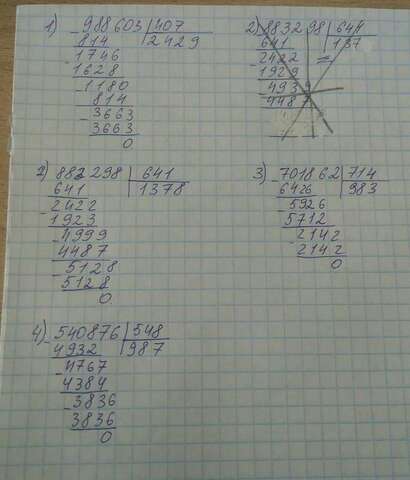 1) 988603 | 407
814 | 2429
1746
1628
1180
814
3663
3663
0
2) 8832 98 | 641
641 | 137
2422
1929
493
4487
2) 883298 | 641
641 | 1378
2422
1923
4999
4487
5128
5128
0
3) 701862 | 714
6426 | 983
5926
5712
2142
2142
0
4) 540876 | 548
4932 | 987
4767
4384
3836
3836
0